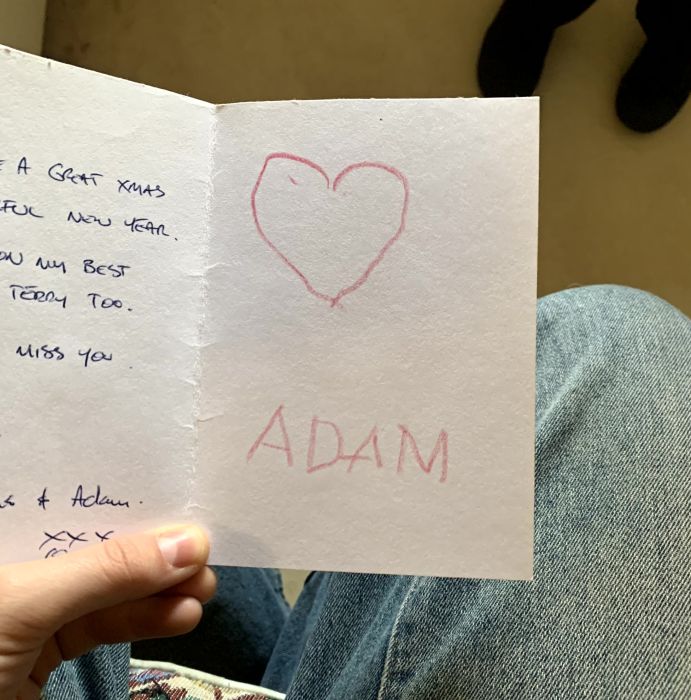 A GREAT XMAS
NEW YEAR.
ON MY BEST
TERRY TOO.
MISS YOU
& Adam.
XXX
ADAM